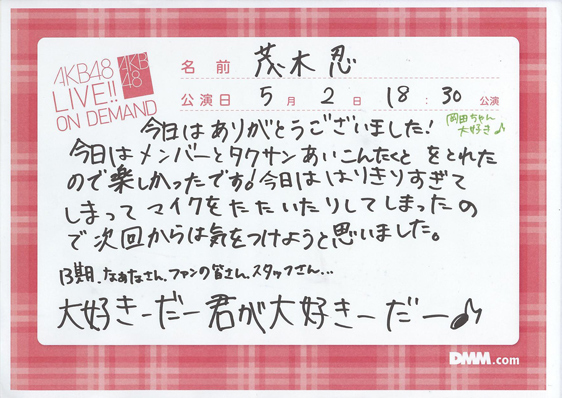 AKB48
LIVE!!
ON DEMAND
AKB
48
名前 茂木忍
公演日 5月2日 18:30公演
岡田ちゃん
大好き♪
今日はありがとうございました!
今日はメンバーとタクサンあいこんたくとをとれた
ので楽しかったです!今日ははりきりすぎて
しまってマイクをたたいたりしてしまったの
で次回からは気をつけようと思いました。
13期、なぁなさん、ファンの皆さん、スタッフさん...
大好きーだー君が大好きーだー♪
DMM.com